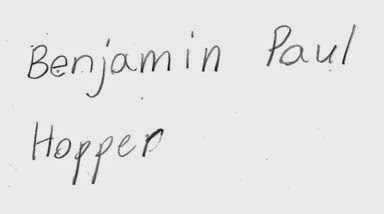 Benjamin Paul
Hopper